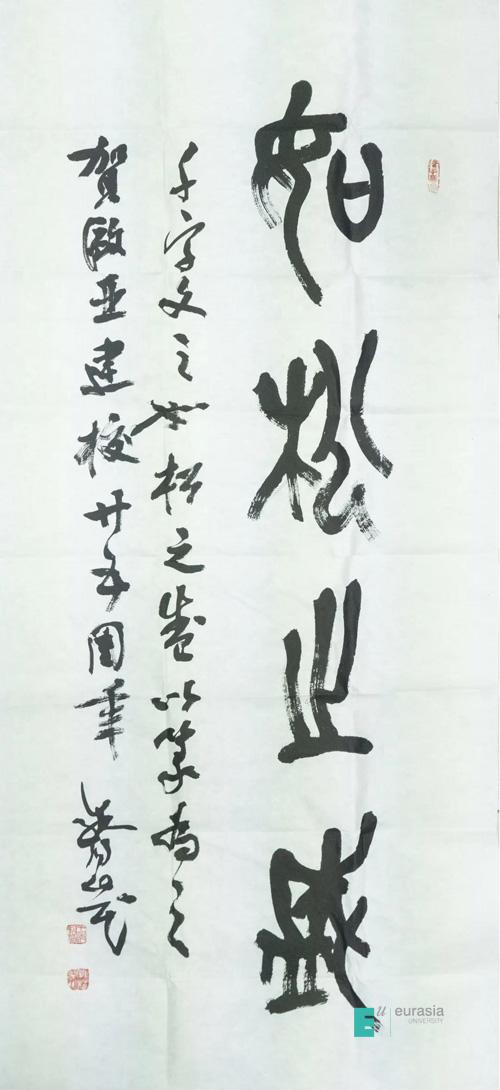 如松之盛
千字文之如松之盛以篆為之
賀歐亞建校廿五周年
eurasia
UNIVERSITY